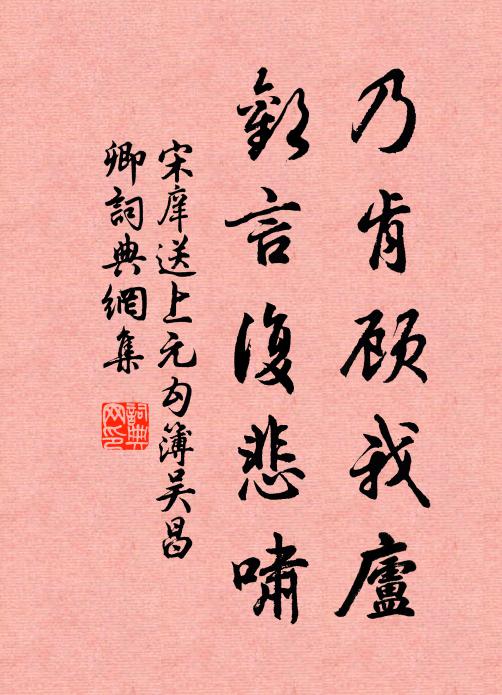 乃肯顾我廬
歡言復悲嘯
宋庠送上元勾簿吴昌
卿詞典網集
詞典
网印